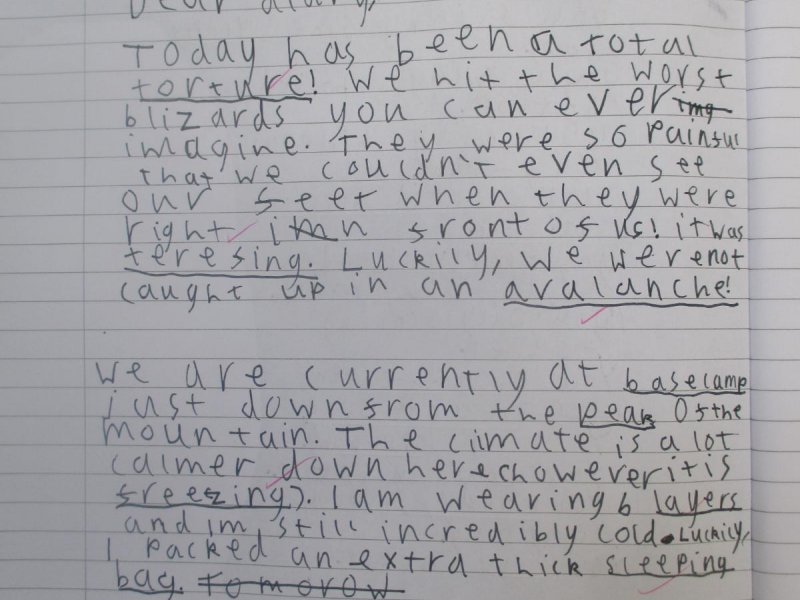 Dear diary,
Today has been a total
torture! We hit the worst
blizards you can ever img
imagine. They were so painful
that we couldn't even see
our feet when they were
right imn front of us! it was
teresing. Luckily, we were not
caught up in an avalanche!
We are currently at basecamp
just down from the peak Of the
mountain. The climate is a lot
calmer down here (however it is
freezing). I am wearing 6 layers
and im still incredibly cold. Luckily,
I packed an extra thick sleeping
bag. tomorow